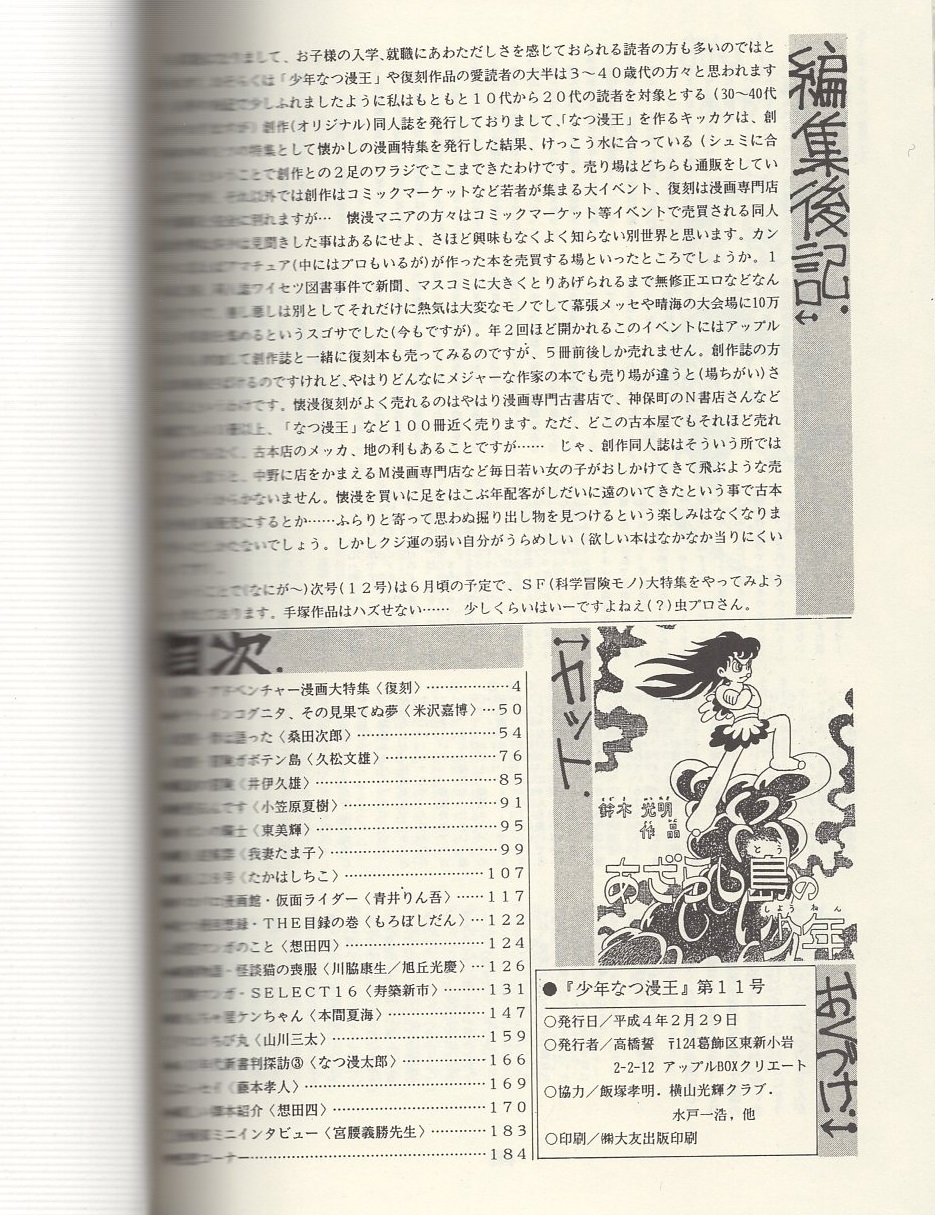 編集後記.
まして、お子様の入学、就職にあわただしさを感じておられる読者の方も多いのではと
くは「少年なつ漫王」や復刻作品の愛読者の大半は3～40歳代の方々と思われます
で少しふれましたように私はもともと10代から20代の読者を対象とする(30～40代
創作(オリジナル)同人誌を発行しておりまして、「なつ漫王」を作るキッカケは、創
特集として懐かしの漫画特集を発行した結果、けっこう水に合っている(シュミに合
ことで創作との2足のワラジでここまできたわけです。売り場はどちらも通販をしてい
では創作はコミックマーケットなど若者が集まる大イベント、復刻は漫画専門店
に別れますが… 懐漫マニアの方々はコミックマーケット等イベントで売買される同人
見聞きした事はあるにせよ、さほど興味もなくよく知らない別世界と思います。カン
アマチュア(中にはプロもいるが)が作った本を売買する場といったところでしょうか。1
ワイセツ図書事件で新聞、マスコミに大きくとりあげられるまで無修正エロなどなん
悪しは別としてそれだけに熱気は大変なモノでして幕張メッセや晴海の大会場に10万
集めるというスゴサでした(今もですが)。年2回ほど開かれるこのイベントにはアップル
して創作誌と一緒に復刻本も売ってみるのですが、5冊前後しか売れません。創作誌の方
るのですけれど、やはりどんなにメジャーな作家の本でも売り場が違うと(場ちがい)さ
けです。懐漫復刻がよく売れるのはやはり漫画専門古書店で、神保町のN書店さんなど
以上、「なつ漫王」など100冊近く売ります。ただ、どこの古本屋でもそれほど売れ
、古本店のメッカ、地の利もあることですが…… じゃ、創作同人誌はそういう所では
と、中野に店をかまえるM漫画専門店など毎日若い女の子がおしかけてきて飛ぶような売
かないません。懐漫を買いに足をはこぶ年配客がしだいに遠のいてきたという事で古本
にするとか……ふらりと寄って思わぬ掘り出し物を見つけるという楽しみはなくなりま
ないでしょう。しかしクジ運の弱い自分がうらめしい(欲しい本はなかなか当りにくい
ことで(なにが～)次号(12号)は6月頃の予定で、SF(科学冒険モノ)大特集をやってみよう
おります。手塚作品はハズせない…… 少しくらいはいーですよねえ(?)虫プロさん。
目次.
アドベンチャー漫画大特集〈復刻〉……………4
コグニタ、その見果てぬ夢〈米沢嘉博〉…50
は語った〈桑田次郎〉……………54
ガボテン島〈久松文雄〉……………76
冒険〈井伊久雄〉……………85
です〈小笠原夏樹〉……………91
士〈東美輝〉……………95
〈我妻たま子〉……………99
号〈たかはしちこ〉……………107
漫画館・仮面ライダー〈青井りん吾〉……117
録・THE目録の巻〈もろぼしだん〉…122
ンガのこと〈想田四〉……………124
・怪談猫の喪服〈川脇康生／旭丘光慶〉…126
マンガ・SELECT16〈寿築新市〉……131
屋ケンちゃん〈本間夏海〉……………147
ちび丸〈山川三太〉……………159
代新書判探訪③〈なつ漫太郎〉………166
セイ〈藤本孝人〉……………169
本紹介〈想田四〉……………170
ミニインタビュー〈宮腰義勝先生〉……183
コーナー……………184
↑カット.
鈴木光明
作品
あぜみ島の
少年
とう
しょうねん
おくづけ.↓
●『少年なつ漫王』第11号
○発行日／平成4年2月29日
○発行者／高橋誓 〒124葛飾区東新小岩
2-2-12 アップルBOXクリエート
○協力／飯塚孝明．横山光輝クラブ．
水戸一浩，他
○印刷／㈱大友出版印刷